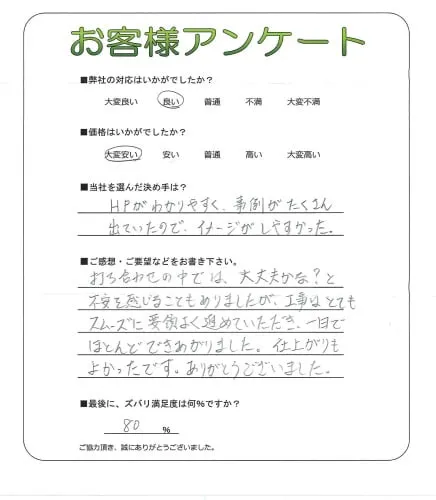 お客様アンケート
■弊社の対応はいかがでしたか？
大変良い 良い 普通 不満 大変不満
■価格はいかがでしたか？
大変安い 安い 普通 高い 大変高い
■当社を選んだ決め手は？
HPがわかりやすく、事例がたくさん
出ていたので、イメージがしやすかった。
■ご感想・ご要望などをお書き下さい。
打ち合わせの中では、大丈夫かな？と
不安を感じることもありましたが、工事はとても
スムーズに要領よく進めていただき、一日で
ほとんどできあがりました。仕上がりも
よかったです。ありがとうございました。
■最後に、ズバリ満足度は何%ですか？
80 %
ご協力頂き、誠にありがとうございました。